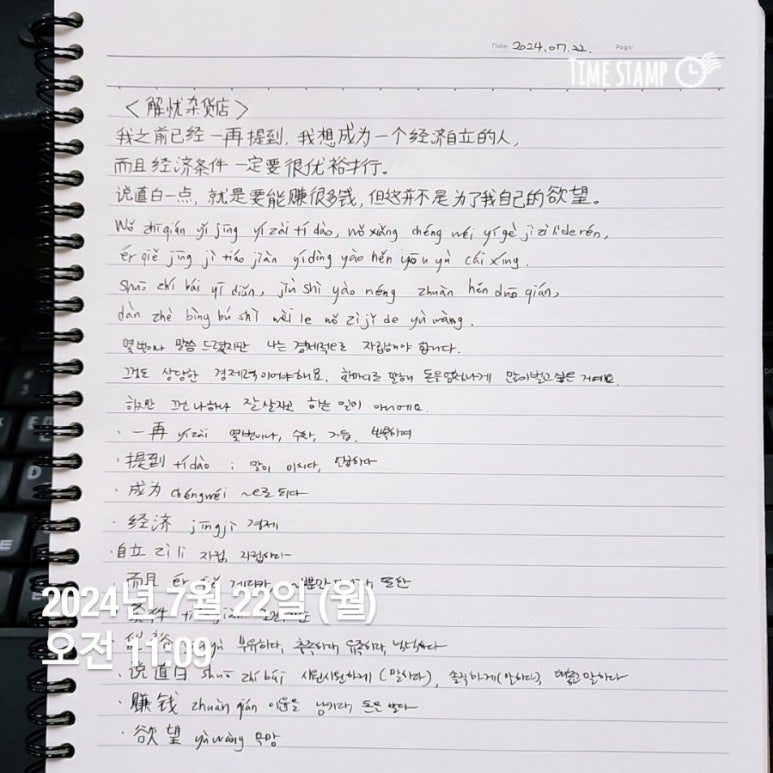 Date. 2024. 07. 22. Page/
TIME STAMP
<解忧杂货店>
我之前已经一再提到, 我想成为一个经济自立的人,
而且经济条件一定要很优裕才行。
说直白一点, 就是要能赚很多钱, 但这并不是为了我自己的欲望。
Wǒ zhīqián yǐ jīng yí zài tí dào, wǒ xiǎng chéng wéi yí gè jì zì lì de rén,
ér qiě jīng jì tiáo jiàn yídìng yào hěn yōu yù cái xíng.
Shuō zhí bái yì diǎn, jiù shì yào néng zhuàn hěn duō qián,
dàn zhè bìng bú shì wèi le wǒ zì jǐ de yù wàng.
몇번이나 말씀 드렸지만 나는 경제적으로 자립해야 합니다.
그것도 상당한 경제력이어야해요. 한마디로 말해 돈을엄청나게 많이벌고싶은 거예요.
하지만 그건 나하나 잘 살자고 하는 일이 아니에요.
· 一再 yízài 몇번이나, 수차, 거듭, 반복하여
· 提到 tídào : 말이 미치다, 언급하다
· 成为 chéngwéi ~으로 되다
· 经济 jīngjì 경제
· 自立 zì lì 자립, 자립하다
· 而且 ér qiě 게다가 ~뿐만 또한
2024년 7월 22일 (월)
条件
오전 11:09
裕 부유하다, 풍족하다, 유족하다, 넉넉하다
· 说直白 shuō zhí bái 시원시원하게 (말하다), 솔직하게(말하다), 말하다
· 赚钱 zhuàn qián 이윤을 남기다, 돈을 벌다
· 欲望 yùwàng 욕망